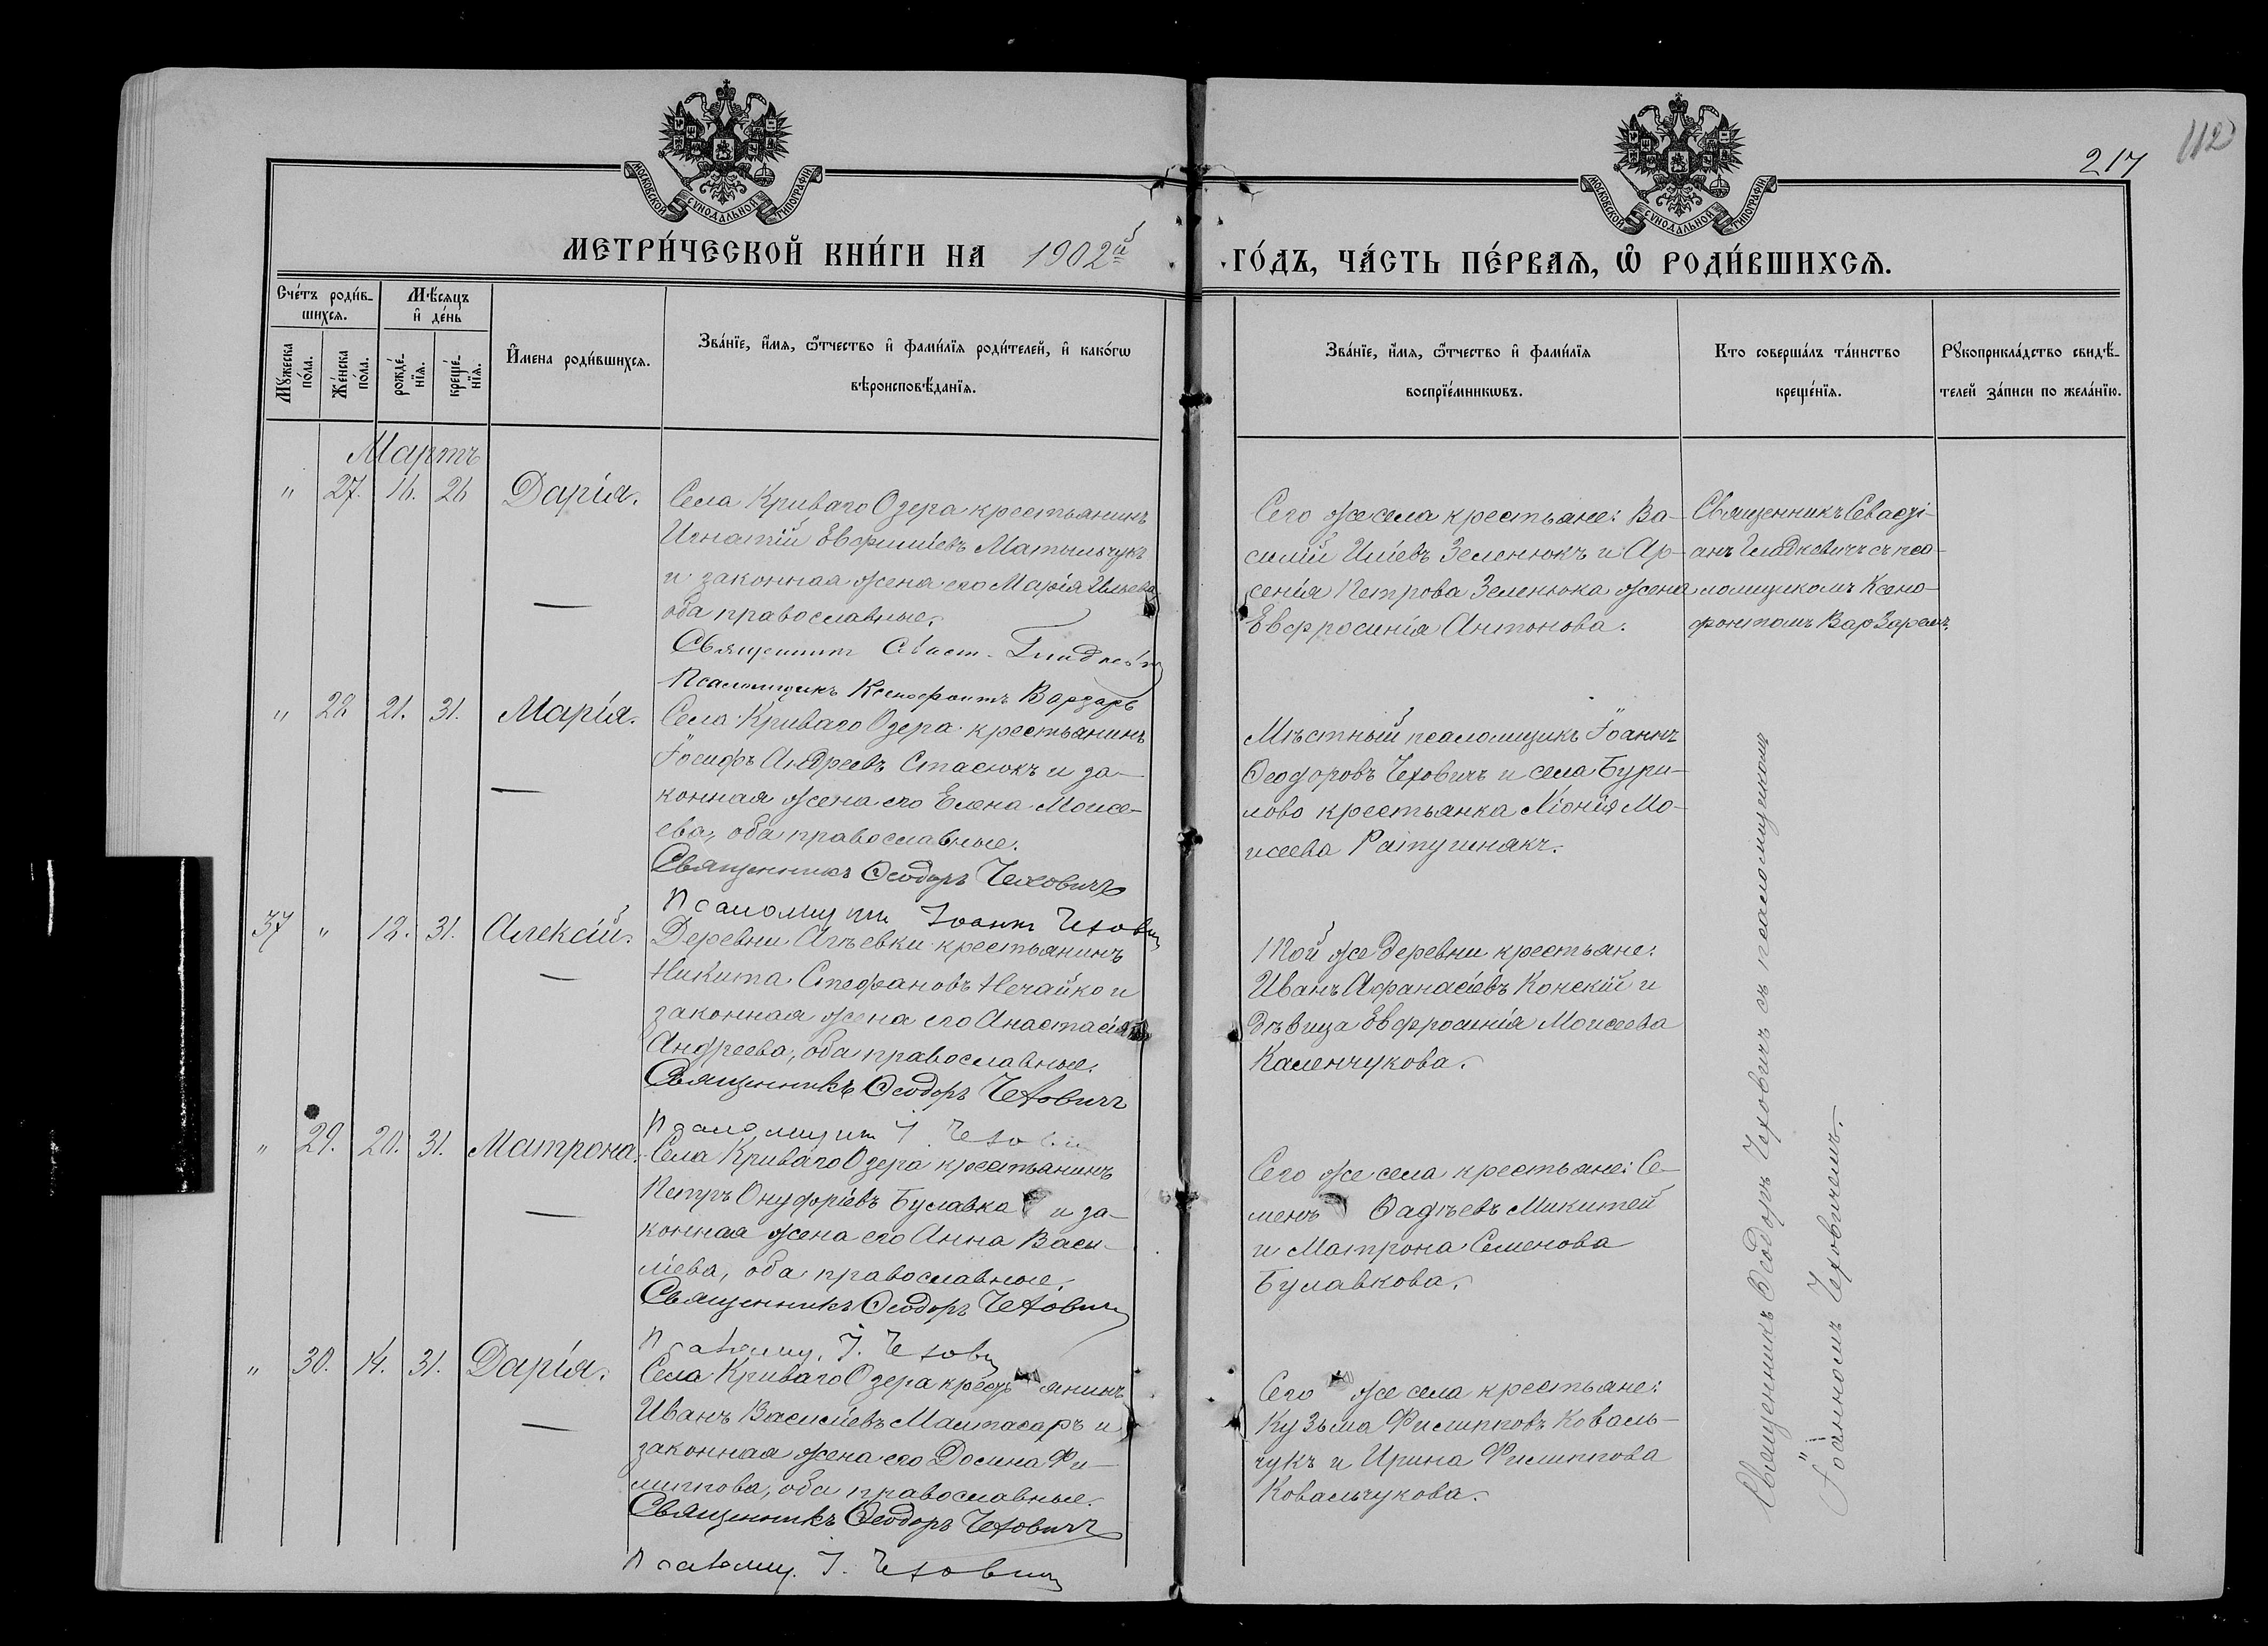 112
217
МОСКОВСКОЙ СѴНОДАЛЬНОЙ ТИПОГРАФІИ
МОСКОВСКОЙ СѴНОДАЛЬНОЙ ТИПОГРАФІИ
МЕТРИ́ЧЕСКОЙ КНИ́ГИ НА 1902й
ГО́ДЪ, ЧА́СТЬ ПЕ́РВАѦ, Ѡ҆ РОДИ́ВШИХСѦ.
Сче́тъ роди́в-
шихсѧ.
Мѣ́сѧцъ
и҆ де́нь
Мꙋ́жеска
по́ла.
Же́нска
по́ла.
рожде́-
нїѧ.
креще́-
нїѧ.
И҆́мена роди́вшихсѧ.
Зва́нїе, и҆́мѧ, ѻ҆́тчество и҆ фами́лїѧ роди́телей, и҆ како́гѡ
вѣроисповѣ́данїѧ.
Зва́нїе, и҆́мѧ, ѻ҆́тчество и҆ фами́лїѧ
воспрїе́мникѡвъ.
Кто соверша́лъ та́инство
креще́нїѧ.
Рꙋкоприкла́дство свидѣ́-
телей за́писи по жела́нїю.
Мартъ
" 27. 16. 26 Дарія.
Села Криваго Озера крестьянинъ
Игнатій Евфиміевъ Матыльчукъ
и законная жена его Марія Ильева,
оба православные.
Священникъ Севаст. Гладкевичъ
Псаломщикъ Ксенофонтъ Варзаръ
Сего же села крестьяне: Ва-
силій Иліевъ Зеленюкъ и Ар-
сенія Петрова Зеленюка жена
Евфросинія Антонова.
Священникъ Севасті-
анъ Гладкевичъ съ пса-
ломщикомъ Ксено-
фонтомъ Варзаремъ.
" 28 21. 31. Марія.
Села Криваго Озера крестьянинъ
Іосифъ Андреевъ Стасюкъ и за-
конная жена его Елена Моисе-
ева, оба православные.
Священникъ Ѳеодоръ Чеховичъ
Псаломщикъ Іоаннъ Чехович
Мѣстный псаломщикъ Іоаннъ
Ѳеодоровъ Чеховичъ и села Бури-
лово крестьянка Хіонія Мо-
исеева Ратушнякъ.
37 " 12. 31. Алексій.
Деревни Агѣевки крестьянинъ
Никита Стефановъ Нечайко и
законная жена его Анастасія
Андреева, оба православные.
Священникъ Ѳеодоръ Чеховичъ
Псаломщик І. Чехович
Той же деревни крестьяне:
Иванъ Афанасіевъ Конскій и
дѣвица Евфросинія Моисеева
Каленчукова.
" 29. 20. 31. Матрона.
Села Криваго Озера крестьянинъ
Петръ Онуфріевъ Булавка и за-
конная жена его Анна Васи-
ліева, оба православные.
Священникъ Ѳеодоръ Чехович
Псаломщ. І. Чехович
Сего же села крестьяне: Се-
менъ Ѳадѣевъ Микитей
и Матрона Семенова
Булавкова.
" 30. 14. 31. Дарія.
Села Криваго Озера крестьянинъ
Иванъ Василіевъ Малтасаръ и
законная жена его Домна Фи-
липпова, оба православные.
Священникъ Ѳеодоръ Чеховичъ
Псаломщ. І. Чехович
Сего же села крестьяне:
Кузьма Филипповъ Коваль-
чукъ и Ирина Филиппова
Ковальчукова.
Священникъ Ѳеодоръ Чеховичъ съ псаломщикомъ
Іоанномъ Чеховичемъ.